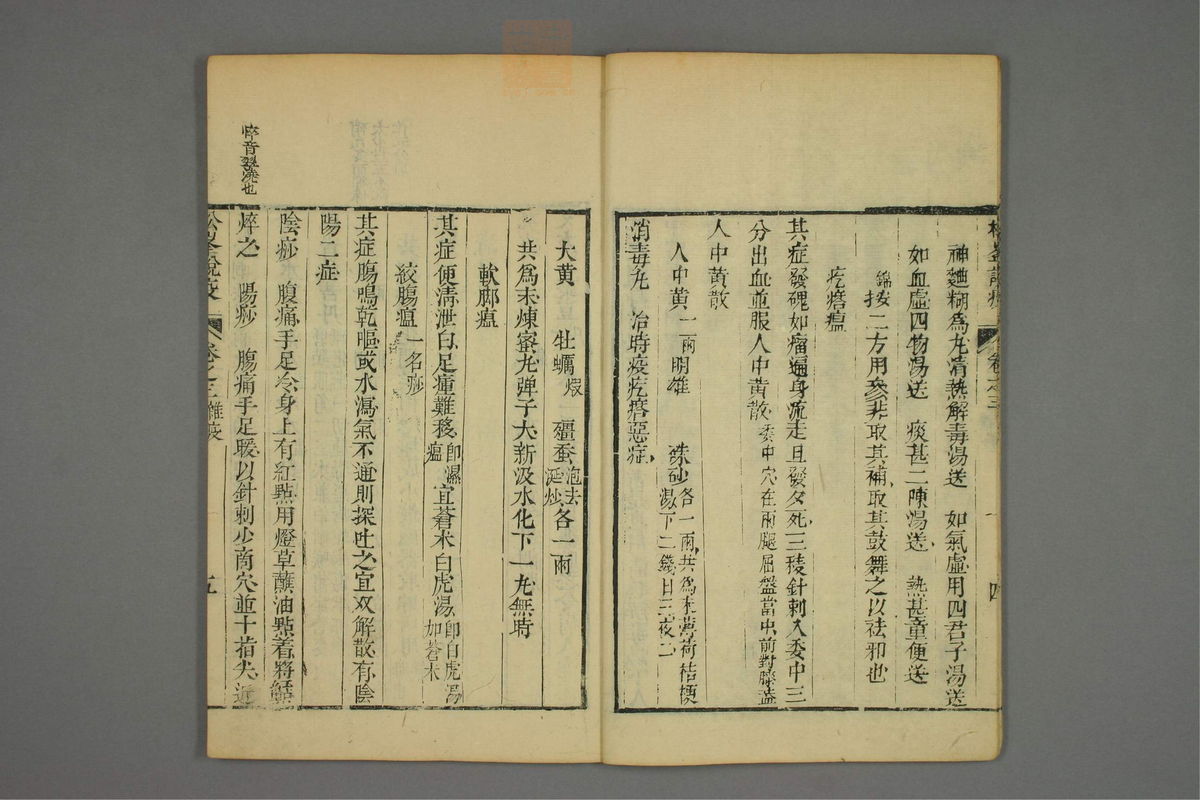 神麯糊為丸清熱解毒湯送　如氣虛用四君子湯送
如血虛四物湯送　痰甚二陳湯送　熱甚童便送
錦按二方用參非取其補取其鼓舞之以祛邪也
疙瘩瘟
其症發磈如瘤遍身流走旦發夕死三稜針刺入委中三
分出血並服人中黃散委中穴在兩腿屈盤當中前對膝盖
人中黃散
人中黃一兩明雄　硃砂各一兩共為末薄荷桔梗湯下二錢日三夜二
消毒丸　治時疫疙瘩惡症
卷之三
四
大黃　牡蠣煅　殭蚕泡去涎炒各一兩
共為末煉蜜丸彈子大新汲水化下一丸無時
軟脚瘟
其症便清泄白足瘇難移即濕瘟宜蒼朮白虎湯即白虎湯加蒼朮
絞腸瘟一名痧
其症腸鳴乾嘔或水瀉氣不通則探吐之宜双解散有陰
陽二症
陰痧　腹痛手足冷身上有紅點用燈草蘸油點着將
焠之　陽痧　腸痛手足暖以針刺少商穴並十指尖近
焠音翠燒也
松峯說疫　卷之三雜疫　五